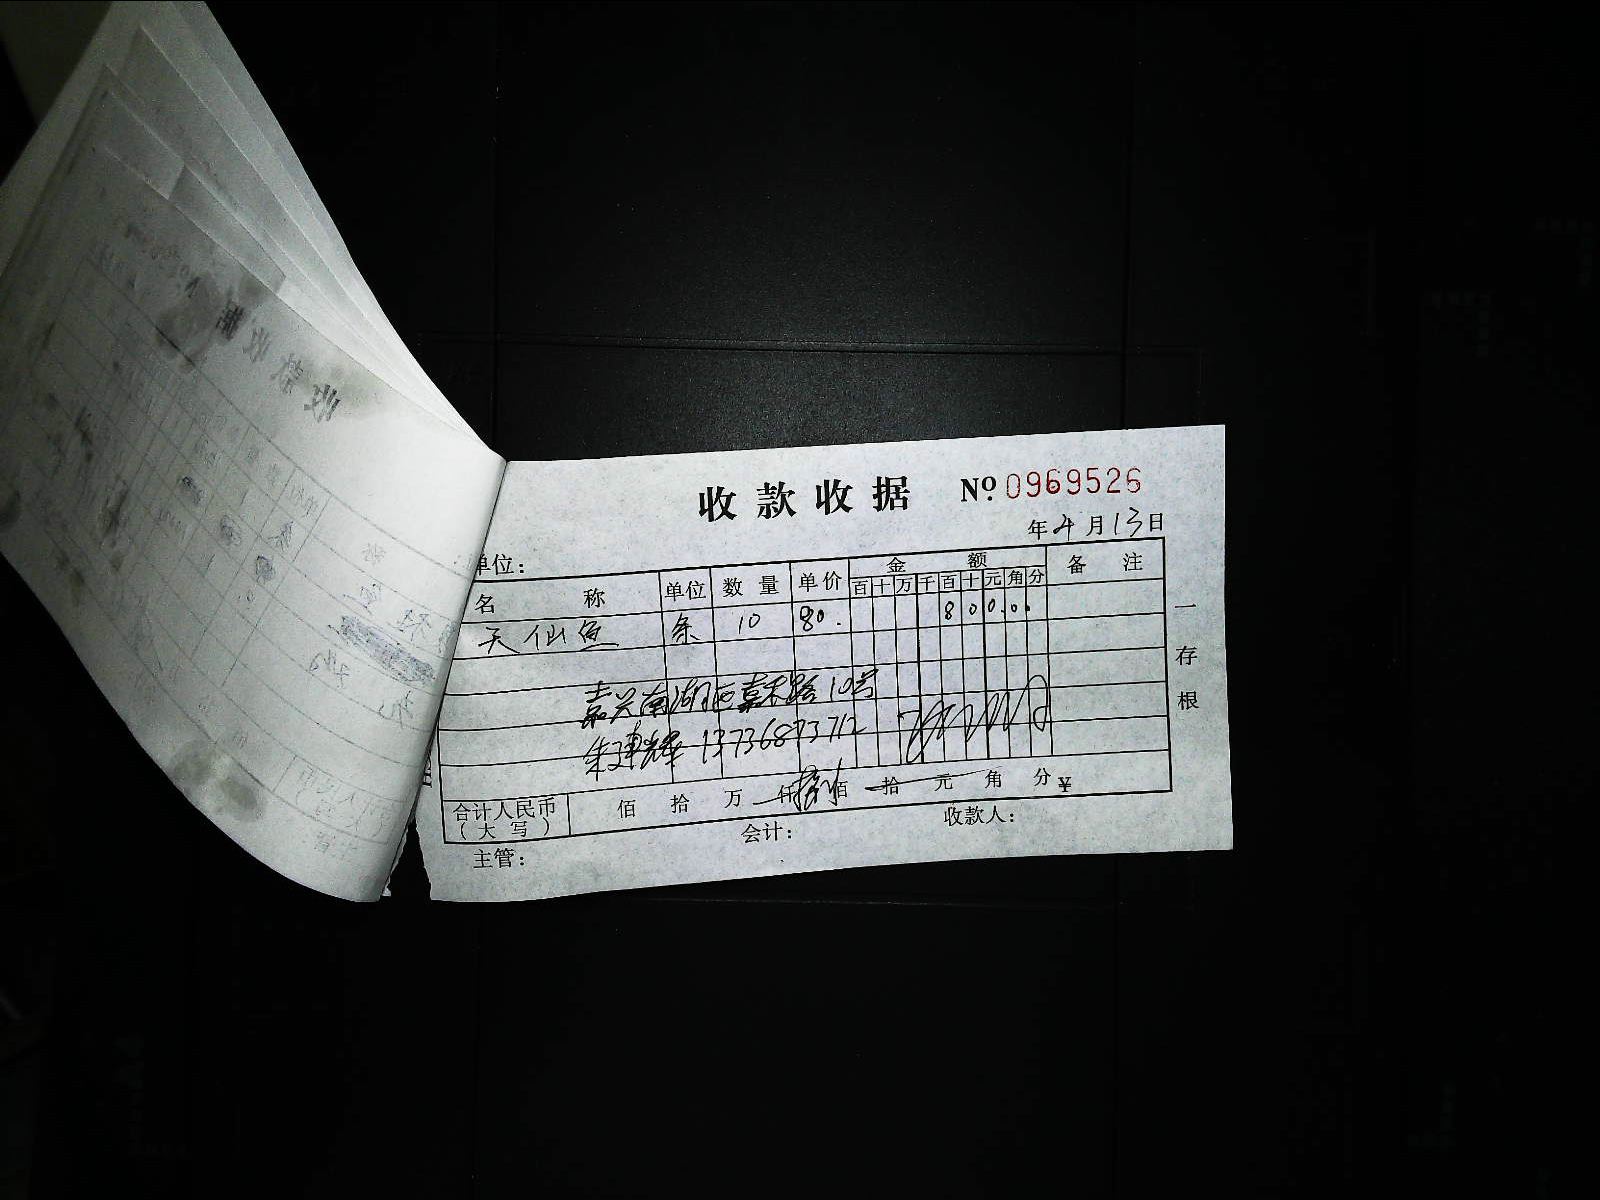 收款收据 № 0969526
年 4 月 13 日
单位：
名 称 单位 数量 单价 金额 备注
百 十 万 千 百 十 元 角 分
天仙鱼 条 10 80. 8 0 0. 0 0
嘉兴南湖区嘉禾路10号
朱建辉 13736873712
合计人民币（大写） 佰 拾 万 仟 捌 佰 拾 元 角 分 ¥
主管： 会计： 收款人：
一存根